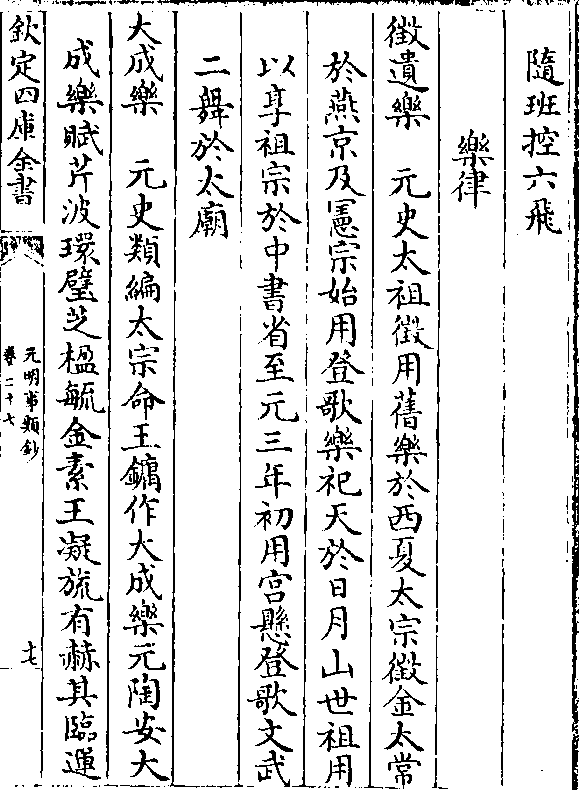 隨班控六飛
樂律
徵遺樂　元史太祖徵用舊樂於西夏太宗徵金太常
於燕京及憲宗始用登歌樂祀天於日月山世祖用
以享祖宗於中書省至元三年初用宮懸登歌文武
二舞於太廟
大成樂　元史類編太宗命王鏞作大成樂元陶安大
成樂賦芹波環璧芝楹毓金素王凝旒有赫其臨運
欽定四庫全書
元明事類鈔
卷二十七
十七